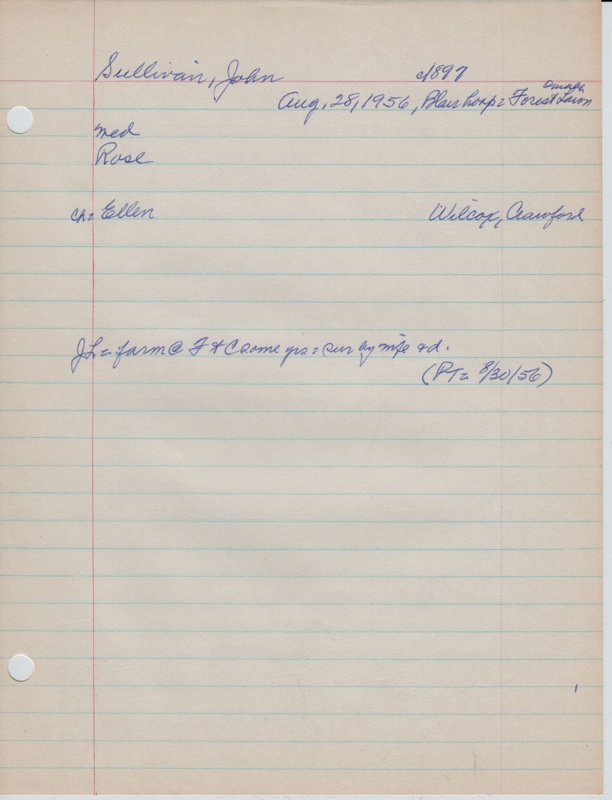 Sullivan, John c1897
Omaha
Aug, 28, 1956, Blair hosp = Forest Lawn
med
Rose
ch = Ellen Wilcox, Crawford
farm @ Ft C some yrs = sur by wife + d.
(PT = 8/30/56)